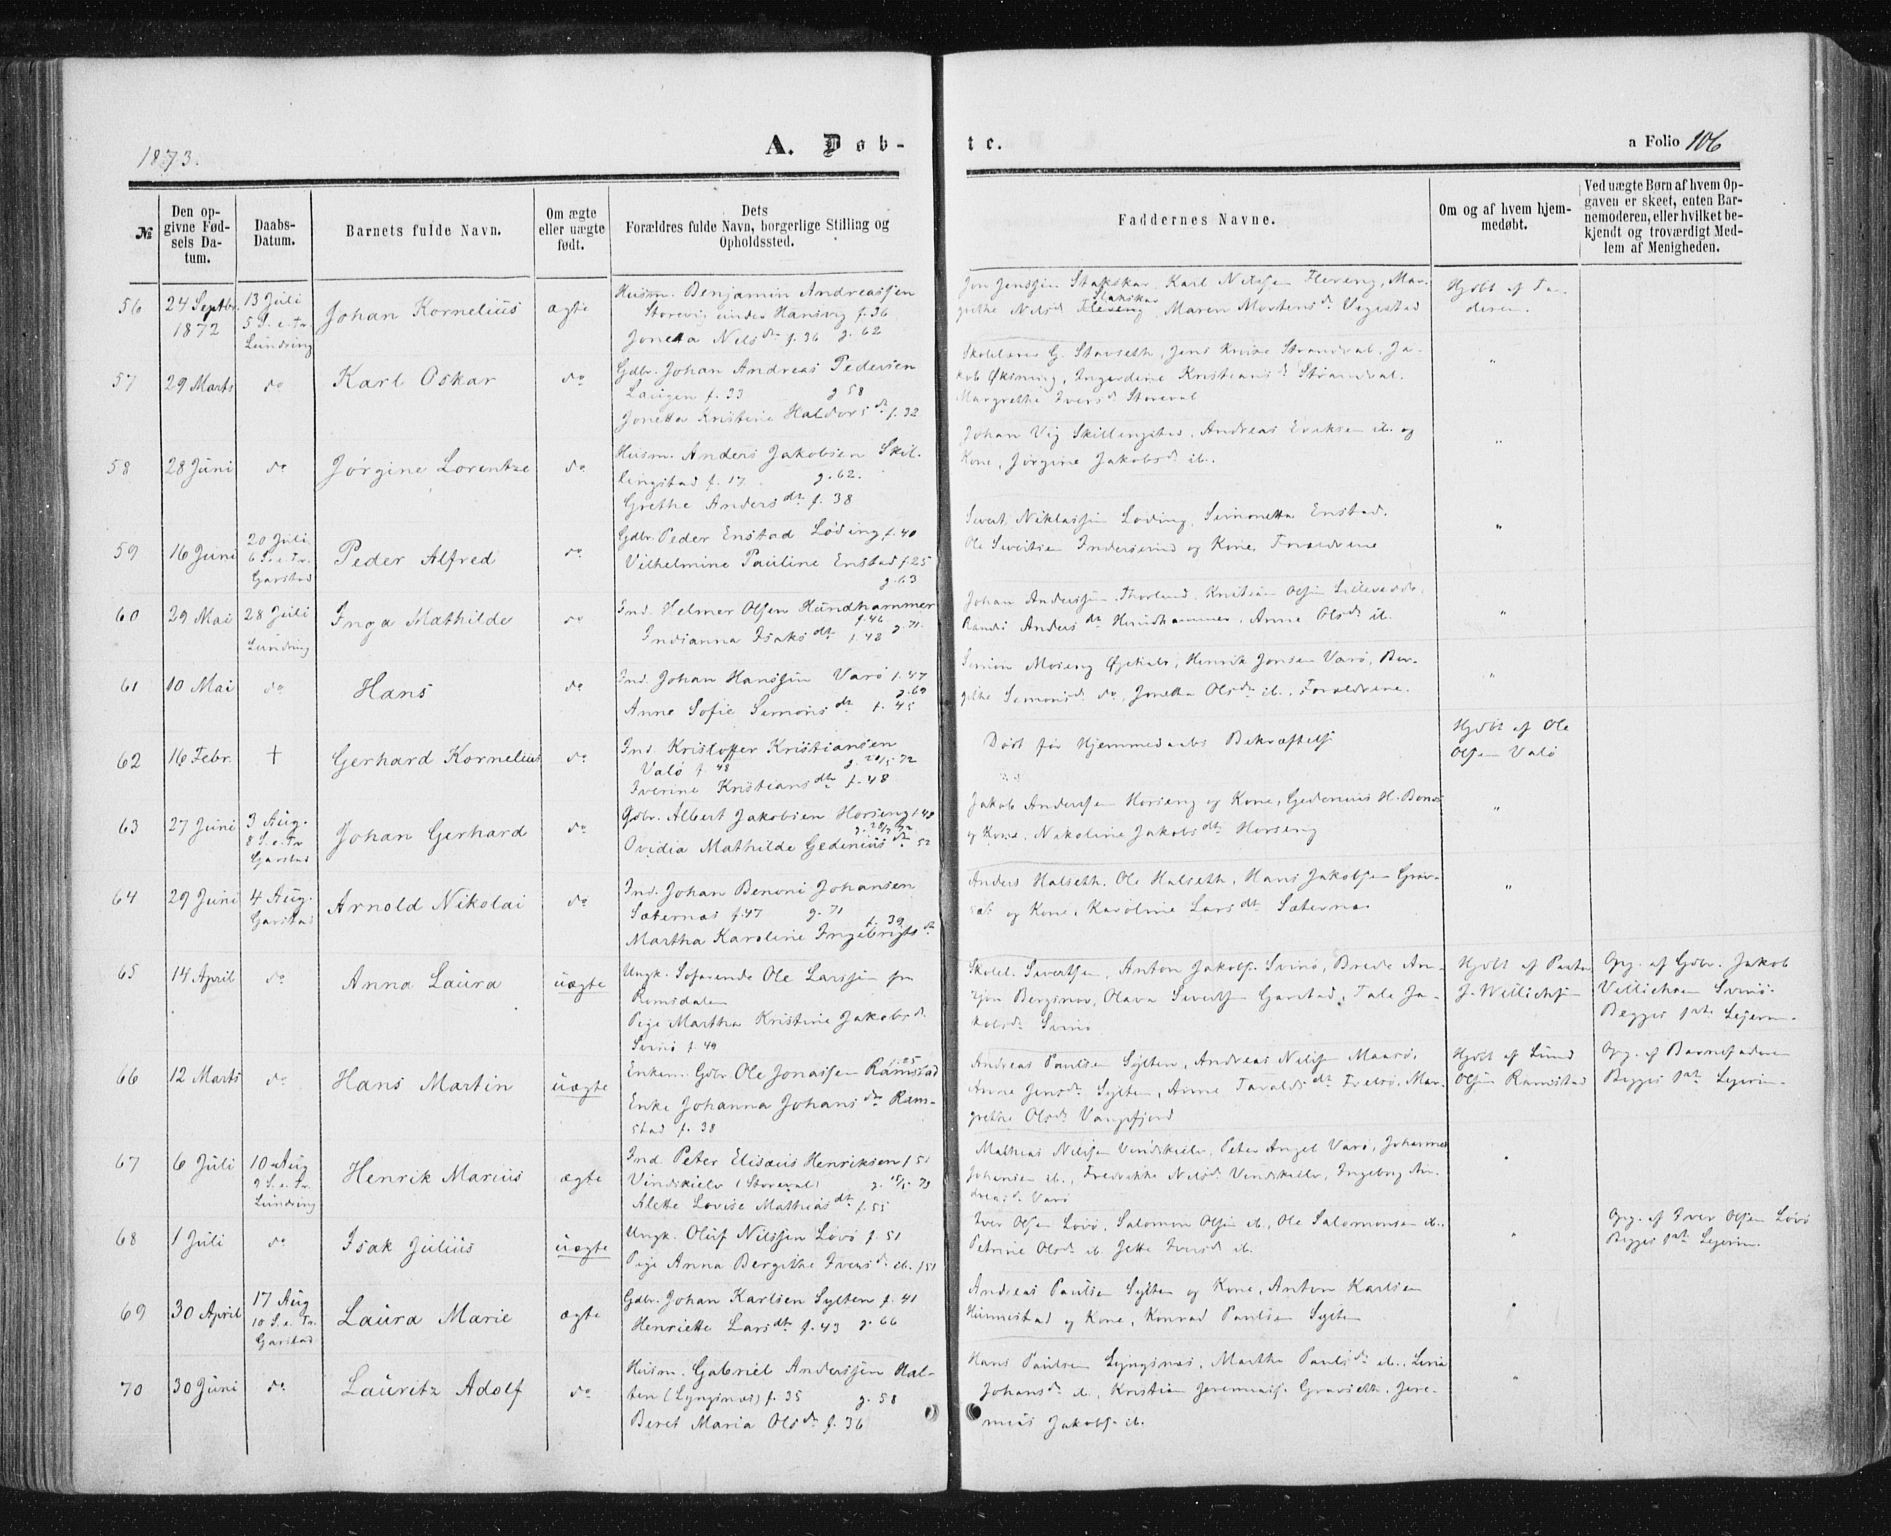 1873.
A. Døb-
te.
a Folio 106
№
Den op-
givne Fød-
sels Da-
tum.
Daabs-
Datum.
Barnets fulde Navn.
Om ægte
eller uægte
født.
Dets
Forældres fulde Navn, borgerlige Stilling og
Opholdssted.
Faddernes Navne.
Om og af hvem hjem-
medøbt.
Ved uægte Børn af hvem Op-
gaven er skeet, enten Bar-
nemoderen, eller hvilket be-
kjendt og troværdigt Med-
lem af Menigheden.
56
24 Septbr.
1872
13 Juli
5 S. e. Tr.
Lundring
Johan Kornelius
ægte
Husm. Benjamin Andreassen
Storevig under Hansvig f. 36
Jonetta Nilsdtr f. 36 g. 62
Jon Jenssen Stakskar, Karl Nilssen Flereng, Mar-
grethe Nilsd Stakskar, Maren Mortensd. Vegestad
Hjdbt af Fa-
deren.
57
29 Marts
do
Karl Oskar
do
Gdbr. Johan Andreas Pedersen
Laugen f. 33 g 58
Jonetta Kristine Haldorsdt f. 32
Skolelærer G. Stavseth, Jens Strandval. Ja-
kob Øksning, Ingerdine Kristiansd Strandval.
Margrethe Iversd Storeval
"
58
28 Juni
do
Jørgine Lorentze
do
Husm. Anders Jakobsen Skil-
lingstad f. 17 g. 62.
Grethe Andersdt f. 38
Johan Vig Skillingstad, Andreas Eriksen ib. og
Kone, Jørgine Jakobsd ib.
"
59
16 Juni
20 Juli
6 S. e. Tr.
Garstad
Peder Alfred
do
Gdbr. Peder Enstad Løding f. 40
Vilhelmine Pauline Enstad f. 25
g. 63
Sivert Niklassen Løding, Simonetta Enstad.
Ole Sivertsen og Kone, Forældrene
"
60
29 Mai
28 Juli
Lundring
Inga Mathilde
do
Ind. Helmer Olsen Hundhammer
f. 46
Indianna Isaksdt f. 48 g. 71.
Johan Anderssen, Kristian Olsen
Randi Andersdt Hundhammer, Anne Olsd ib.
"
61
10 Mai
do
Hans
do
Ind. Johan Hanssen Varø f. 47
g. 69
Anne Sofie Simonsdt f. 45
Simon Moseng, Henrik Jonsen Varø, Ber-
gitte Simonsd do, Jonetta Olsd ib., Forældrene.
"
62
16 Febr.
†
Gerhard Kornelius
do
Ind. Kristoffer Kristiansen
Valø f. 48 g. 20/5 72
Iverine Kristiansdtr f. 48
Død før Hjemmedaabs Bekræftelse
Hjdbt af Ole
Olsen Valø
63
27 Juni
3 Aug.
8 S. e. Tr
Garstad
Johan Gerhard
do
Gdbr. Albert Jakobsen Horseng f. 48
Ovidia Mathilde Gedeniusd. 52
Jakob Anderssen Horseng og Kone, Gedenius H.
og Kone, Nikoline Jakobsdtr Horseng
"
64
29 Juni
4 Aug.
Garstad
Arnold Nikolai
do
Ind. Johan Benoni Johansen
Sæternæs f. 47 g. 71
f. 39
Martha Karoline Ingebrigtsd
Anders Halseth, Ole Halseth, Hans Jakobsen Grav-
sæt og Kone, Karoline Larsdt Sæternæs
"
65
14 April
do
Anna Laura
uægte
Ungk. Søfarende Ole Larssen fra
Romsdalen
Pige Martha Kristine Jakobsd.
Svinø f. 49
Skolel. Sivertsen, Anton Jakobs. Svinø, Brede An-
Bergsnov, Olava Sivertsen Garstad, Tale Ja-
kobsd. Svinø
Hjdbt af
J. Willichsen
Opg. af Gdbr. Jakob
Villichsen Svinø.
Begges 1ste Lejerm.
66
12 Marts
do
Hans Martin
uægte
f. 25
Enkem. Gdbr Ole Jonassen Ramstad
Enke Johanna Johansdr Ram-
stad f. 38
Andreas Paulsen Sylten, Andreas Nilsen Maarø,
Anne Jensd. Sylten, Anne, Mar-
grethe Olsd
Hjdbt af Lund
Olsen Ramstad
Opg. af Barnefaderen
Begges 1ste Lejerm.
67
6 Juli
10 Aug
9 S. e. Tr.
Lundring
Henrik Marius
ægte
Ind. Peter Elisæus Henriksen f. 51
Vindskielv (Storeval) g. 73
Alette Lovise Mathiasdt f. 55
Mathias Nilssen Vindskielv, Peter Angel Varø, Johannes
Johansen ib., Fredrikke Nilsd Vindskielv, Ingeborg An-
dreasd. Varø
"
68
1 Juli
do
Isak Julius
uægte
Ungk. Oluf Nilssen Løvø f. 51
Pige Anna Bergithe Iversd. ib. f 51
Iver Olsen Løvø, Salomon Olsen ib., Ole Salomonsen ib.,
Petrine Olsd. ib. Jette Iversd. ib.
"
Opg. af Iver Olsen Løvø
Begges 1ste Lejerm.
69
30 April
17 Aug
10 S. e. Tr.
Garstad
Laura Marie
ægte
Gdbr. Johan Karlsen Sylten f. 41
Henriette Larsdt. f. 43 g. 66
Andreas Paulsen Sylten og Kone, Anton Karlsen
Hunnestad og Kone, Konrad Paulsen Sylten
"
70
30 Juni
do
Lauritz Adolf
do
Husm. Gabriel Anderssen Hal-
ten (Lyngsnæs) f. 35 g. 58
Beret Maria Olsdr f. 36
Hans Paulsen Lyngsnæs, Marthe Paulsd. ib.,
Johansd. ib., Kristian Jeremias. Gravseth, Jere-
mias Jakobs. ib.
"